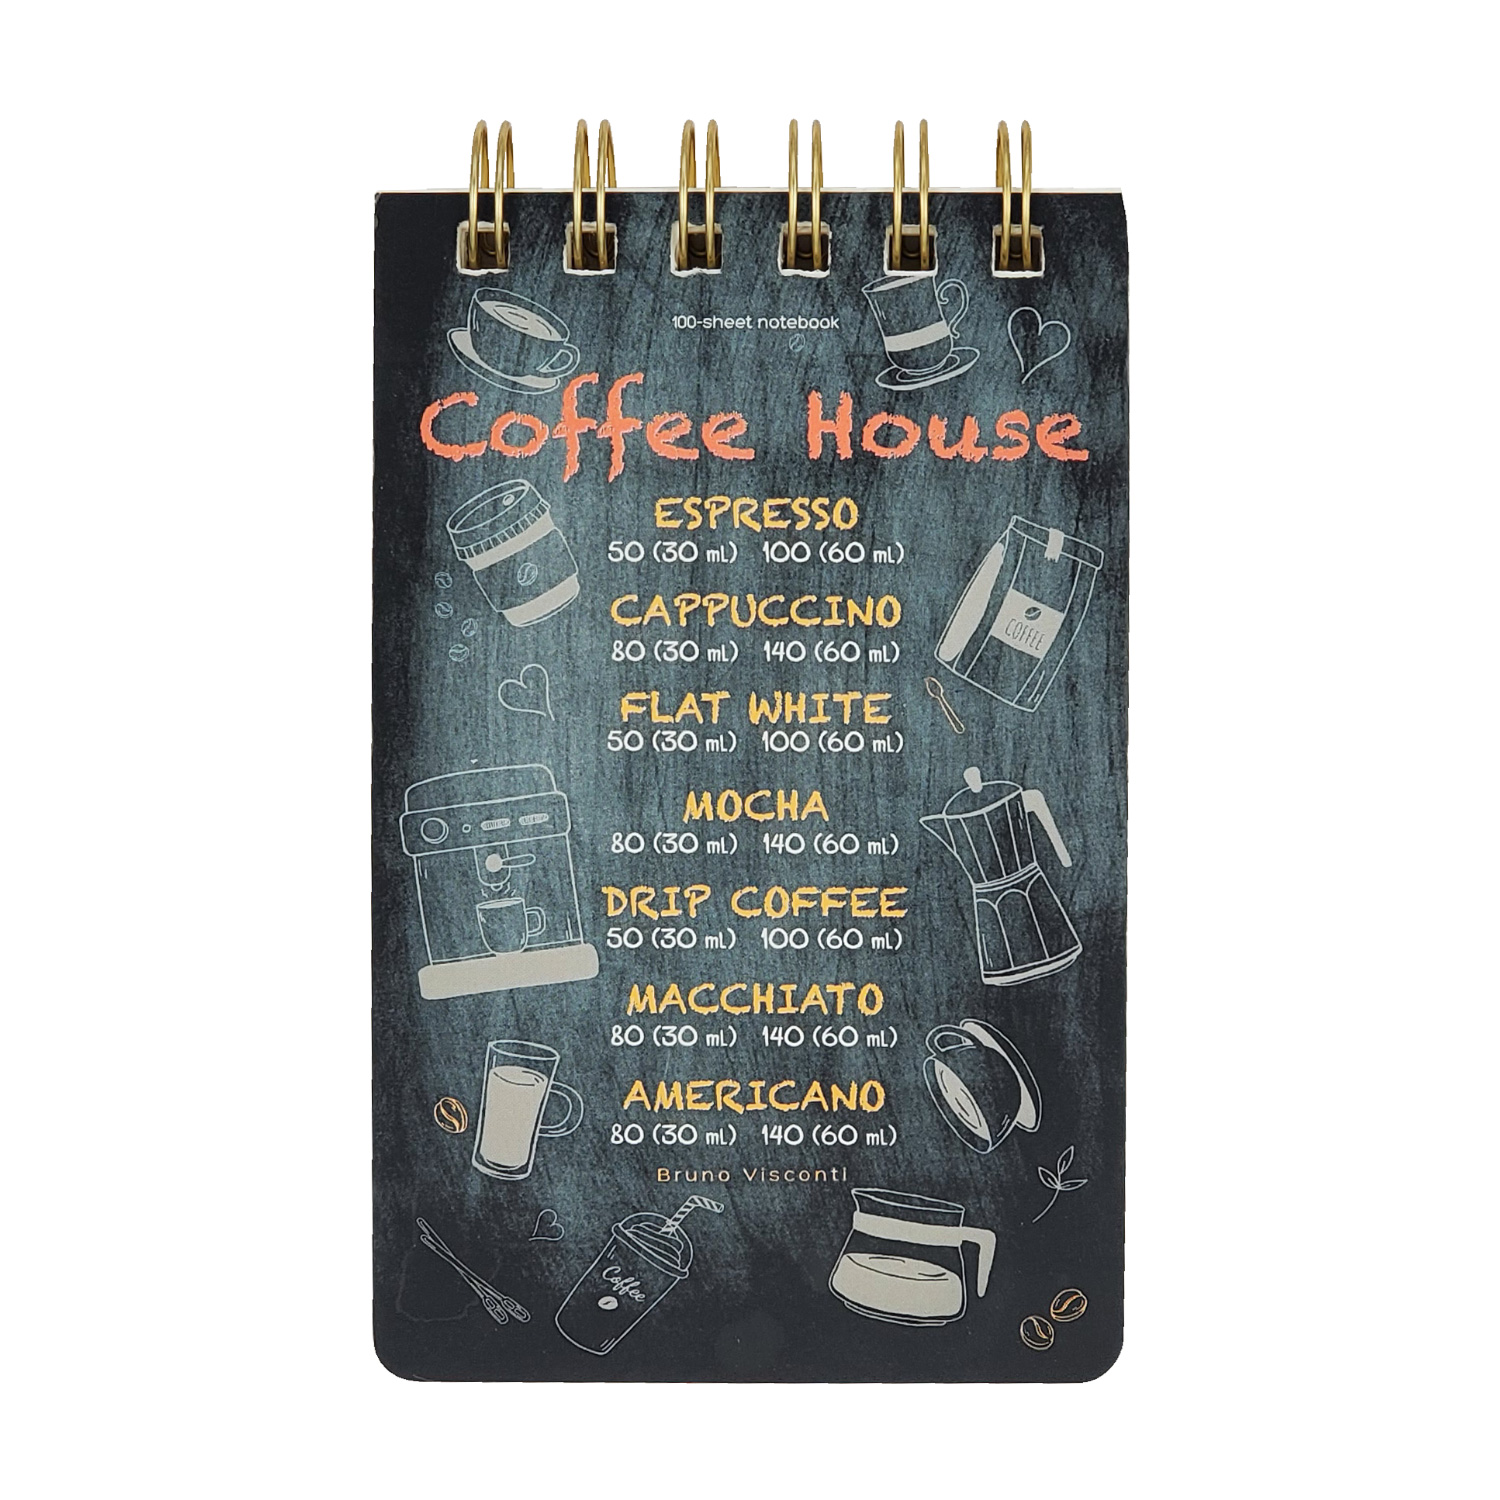 100-sheet notebook
Coffee House
ESPRESSO
50 (30 mL) 100 (60 mL)
CAPPUCCINO
80 (30 mL) 140 (60 mL)
COFFEE
FLAT WHITE
50 (30 mL) 100 (60 mL)
MOCHA
80 (30 mL) 140 (60 mL)
DRIP COFFEE
50 (30 mL) 100 (60 mL)
MACCHIATO
80 (30 mL) 140 (60 mL)
AMERICANO
80 (30 mL) 140 (60 mL)
Bruno Visconti
Coffee